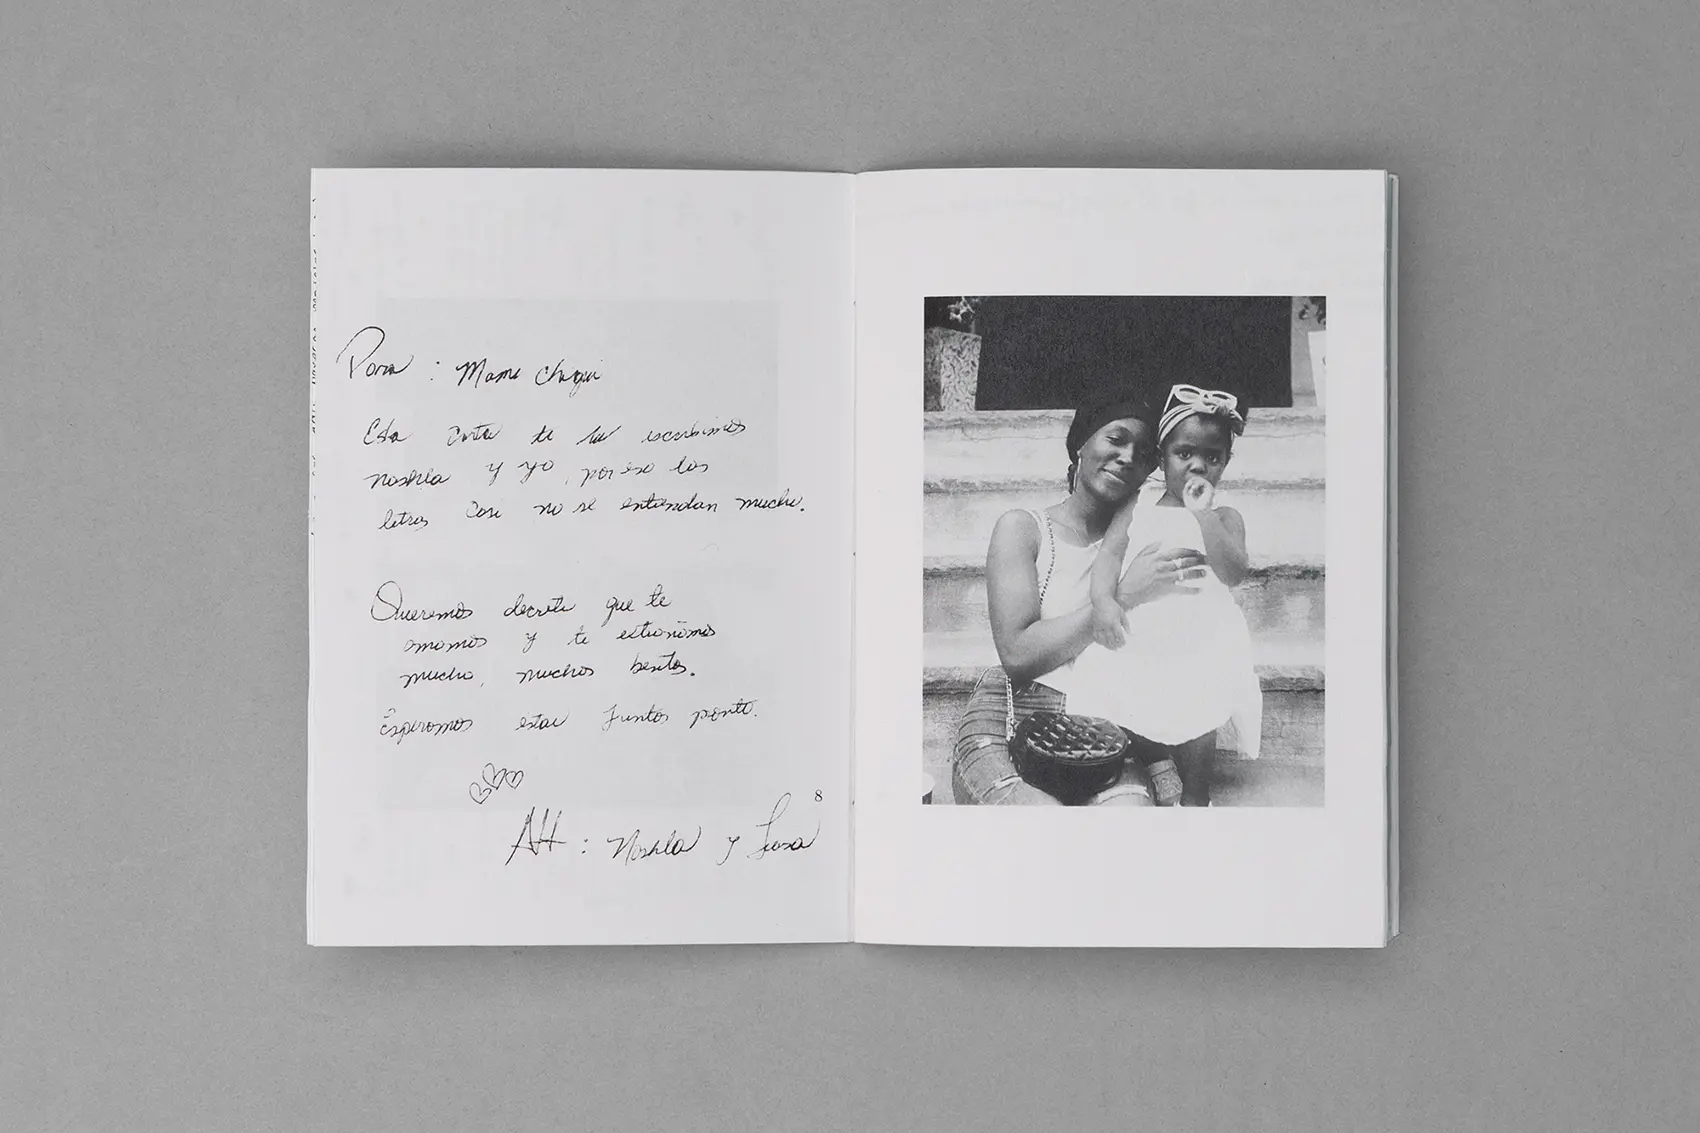 Para : Mami Chqui
Esta carta te la escribimos
Noshla y yo, por eso las
letras casi no se entiendan mucho.
Queremos decirte que te
amamos y te extrañamos
mucho, muchos besitos.
Esperamos estar juntos pronto.
8
Att : Noshla y Luisa